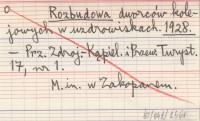 Rozbudowa dworców kole-
jowych w uzdrowiskach. 1928.
— Prz. Zdroj.-Kąpiel. i Przew. Turyst.
17, nr 1.
M. in. w Zakopanem.